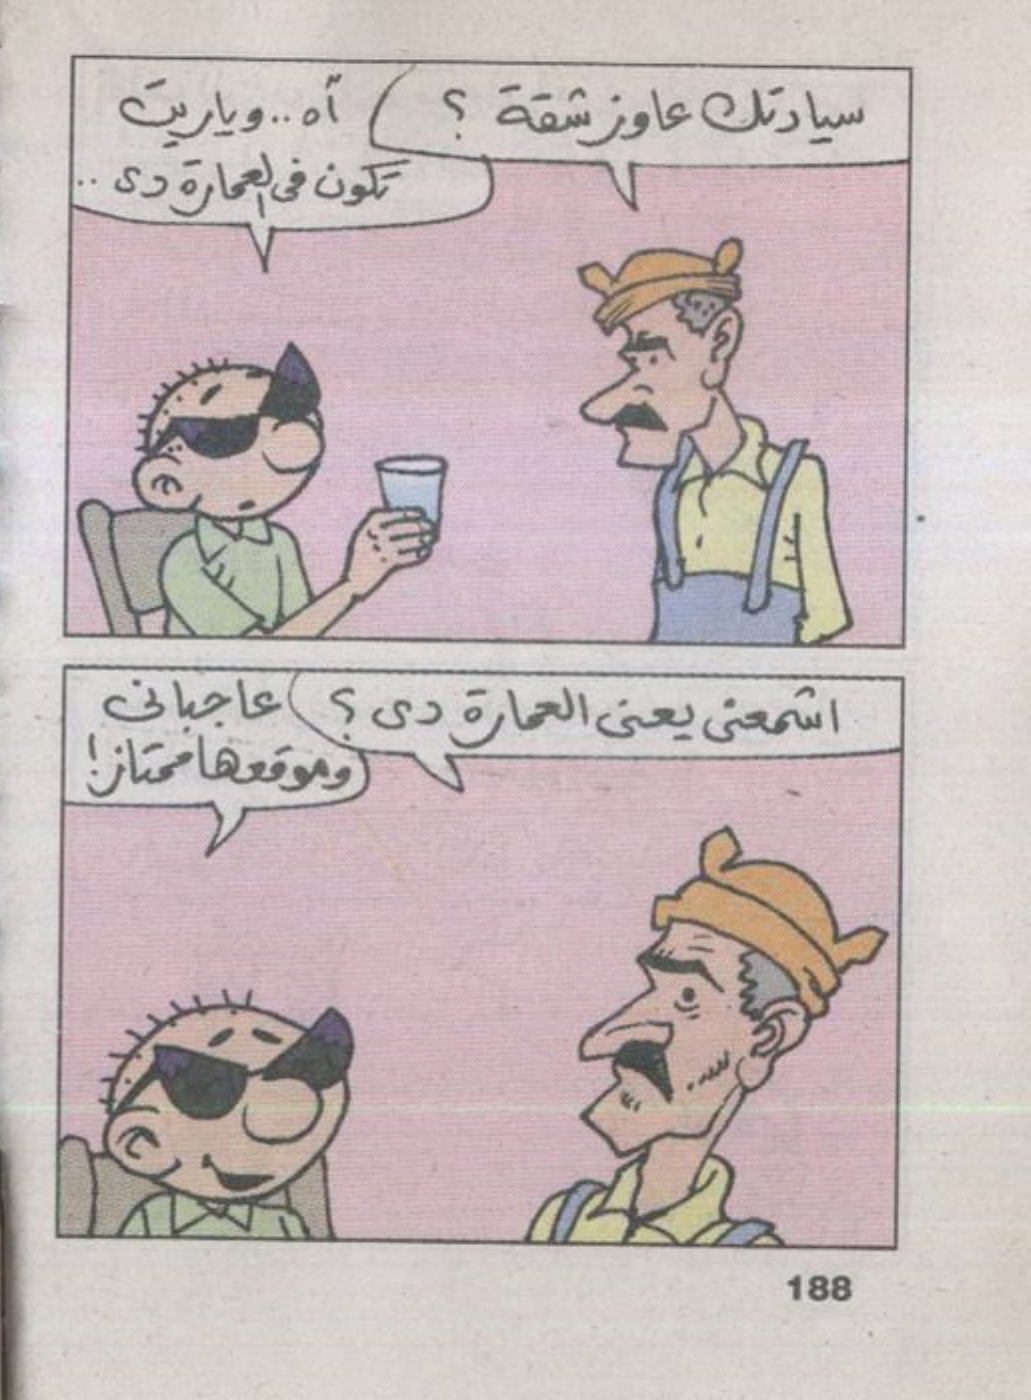 سيادتك عاوز شقة ؟
آه .. و ياريت
تكون فى العمارة دى ..
اشمعنى يعنى العمارة دى ؟
عاجبانى
وموقعها ممتاز !
188